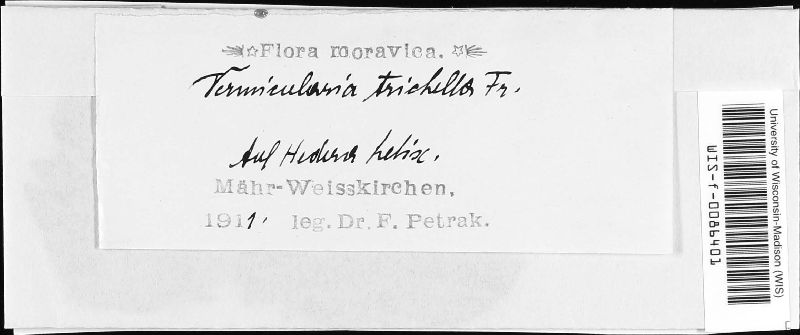 Flora moravica.
Vermicularia trichella Fr.
Auf Hedera helix.
Mähr-Weisskirchen,
1911. leg. Dr. F. Petrak.
University of Wisconsin-Madison (WIS)
WIS-f-0086401